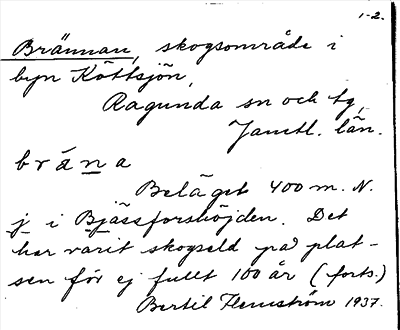 1-2.
Brännan, skogsområde i
byn Köttsjön,
Ragunda sn och tg,
Jämtl. län.
bräna
Beläget 400 m. N.
j i Bjässforshöjden. Det
har varit skogseld på plat-
sen för ej fullt 100 år (forts.)
Bertil Flemström 1937.